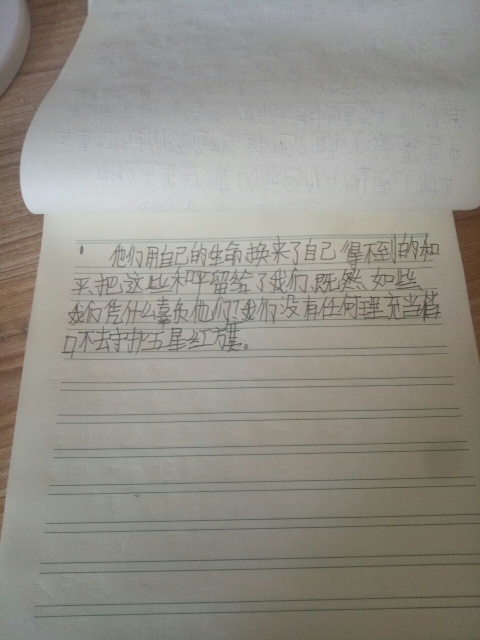 他们用自己的生命,换来了自己得不到的和
平,把这些和平留给了我们,既然如些
我们凭什么辜负他们?我们没有任何理充当借
口不去守护五星红旗。